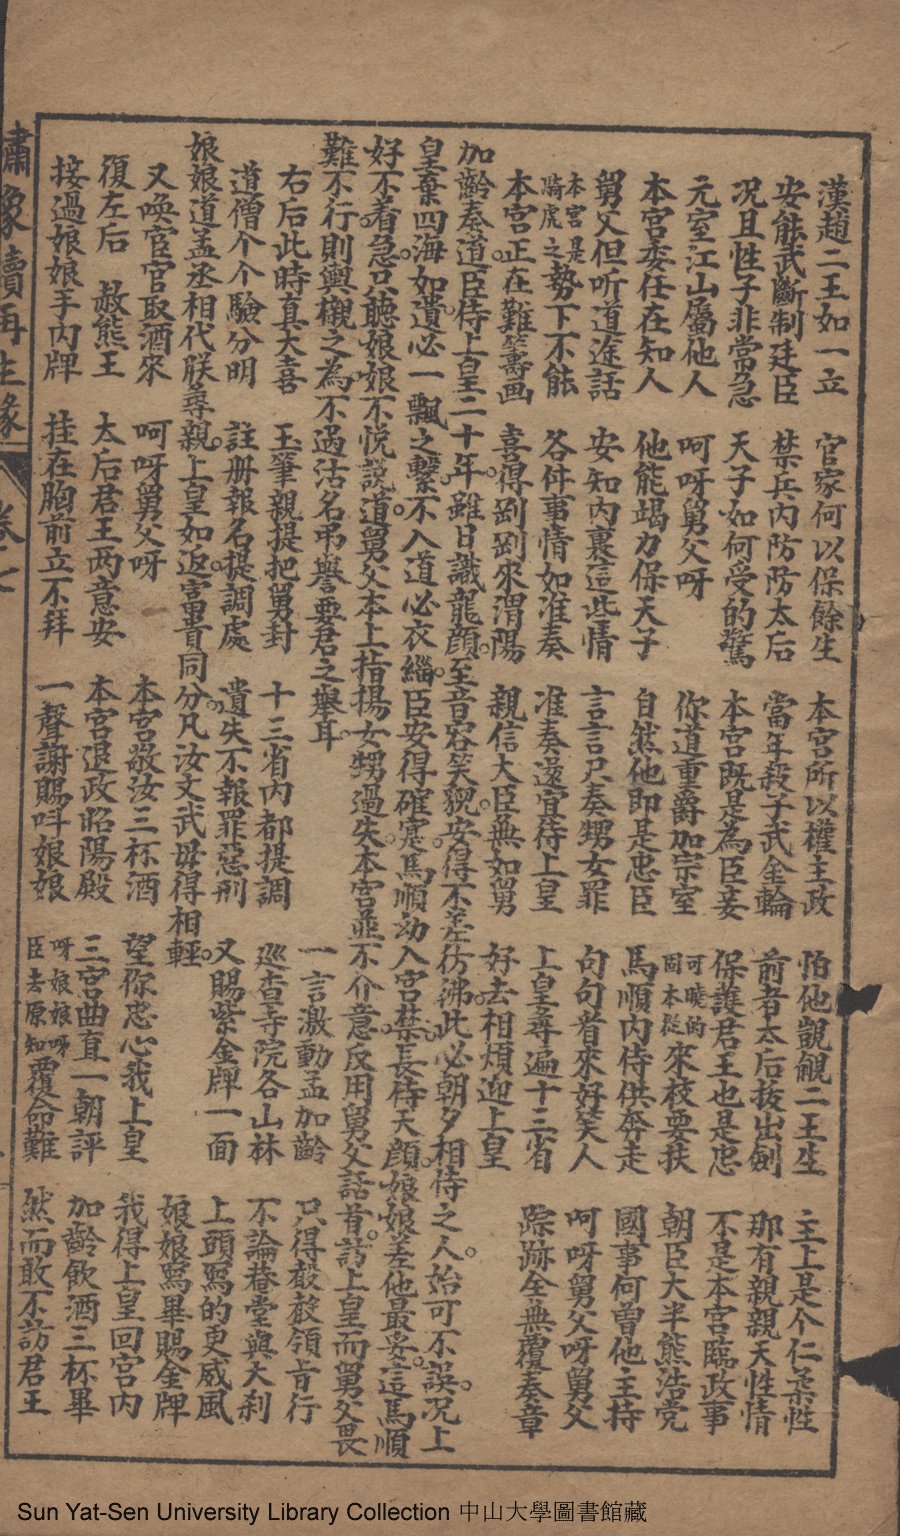 漢趙二王如一立　官家何以保餘生　本宮所以權主政　怕他覬覦二王生　主上是个仁柔性
安能武斷制廷臣　禁兵內防防太后　當年殺子武金輪　前者太后拔出劍　那有親親天性情
况且性子非常急　天子如何受的驚　本宮既是為臣妾　保護君王也是忠　不是本宮臨政事
元室江山屬他人　呵呀舅父呀　你道重爵加宗室　可曉的固本從來枝要扶　朝臣大半熊浩党
本宮委任在知人　他能竭力保天子　自然他即是忠臣　馬順內侍供奔走　國事何曾他主持
舅父但听道途話　安知內裏這些情　言言只奏甥女罪　句句看來好笑人　呵呀舅父呀舅父
本宮是騎虎之勢下不能　各件事情如准奏　准奏還宜待上皇　上皇尋遍十三省　踪跡全無覆奏章
本宮正在難籌画　喜得剴剴來渭陽　親信大臣無如舅　好去相煩迎上皇
加齡奏道。臣侍上皇二十年。雖日識龍顏。至音容笑貌。安得不差彷彿。此必朝夕相侍之人。始可不誤。况上
皇棄四海如遺。必一飄之繫。不入道必衣緇。臣安得確寔。馬順幼入宮禁。長侍天顏。娘娘差他最妥。這馬順
好不着急。只聽娘娘不悅說道。舅父本上指揚女甥過失。本宮並不介意。反用舅父話首。訪上皇而舅父畏
難不行。則輿櫬之為。不過沽名弔譽要君之舉耳。
右后此時真大喜　玉筆親提把舅封　十三省內都提調　一言激動孟加齡　只得殺殺領肯行
道僧个个驗分明　註册報名提調處　遺失不報罪惡刑　巡查寺院各山林　不論菴堂與大刹
娘娘道孟丞相代朕尋親。上皇如返。富貴同分。凡汝文武毋得相輕。　又賜紫金牌一面　上頭寫的更威風
又喚宦官取酒來　呵呀舅父呀　本宮敬汝三杯酒　望你忠心我上皇　娘娘寫畢賜金牌
復左后　赦熊王　太后君王两意安　本宮退政昭陽殿　三宮曲直一朝評　我得上皇回宮內
接過娘娘手內牌　挂在胸前立不拜　一聲謝賜呌娘娘　呀娘娘呀臣去原知覆命難　加齡飲酒三杯畢
然而敢不訪君王
繡像續再生緣　卷十
Sun Yat-Sen University Library Collection 中山大學圖書館藏